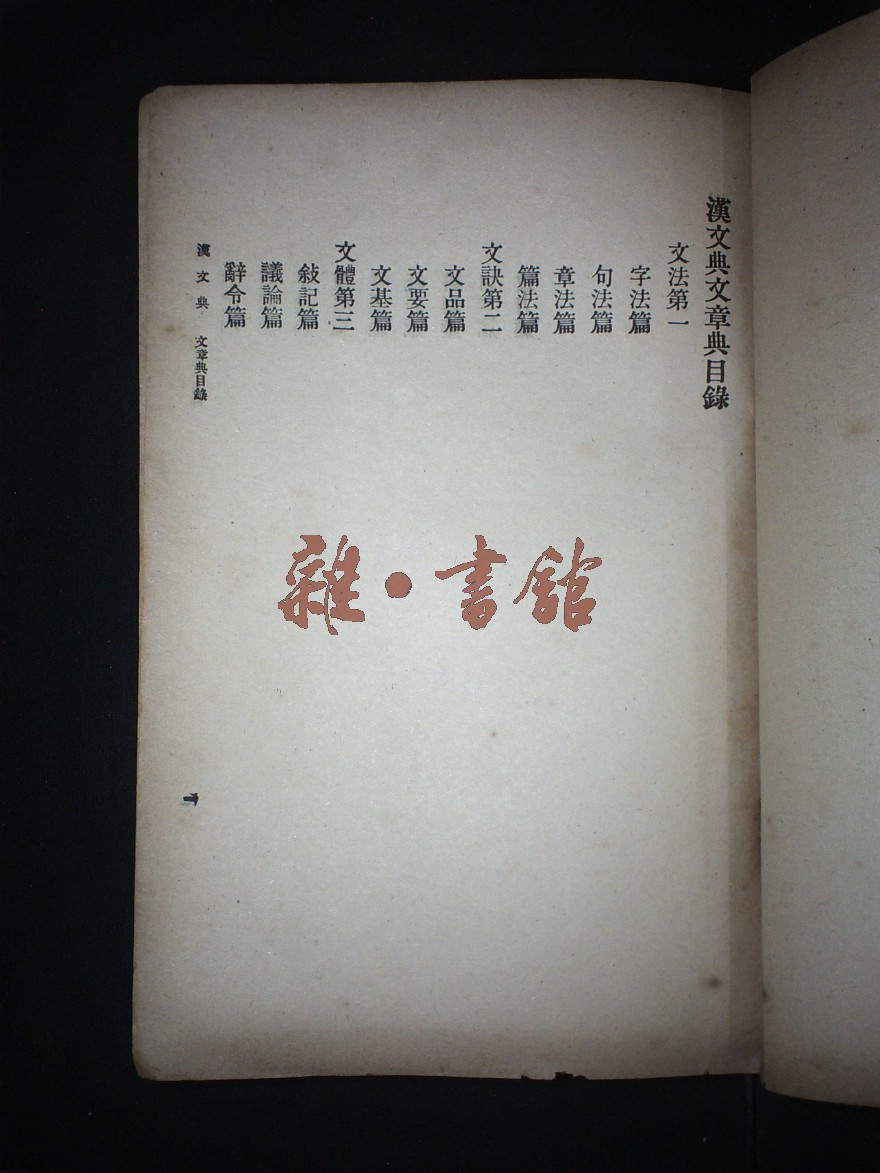 漢文典文章典目錄
文法第一
字法篇
句法篇
章法篇
篇法篇
文訣第二
文品篇
文要篇
文基篇
文體第三
敍記篇
議論篇
辭令篇
漢文典 文章典目錄
一
雜·書館